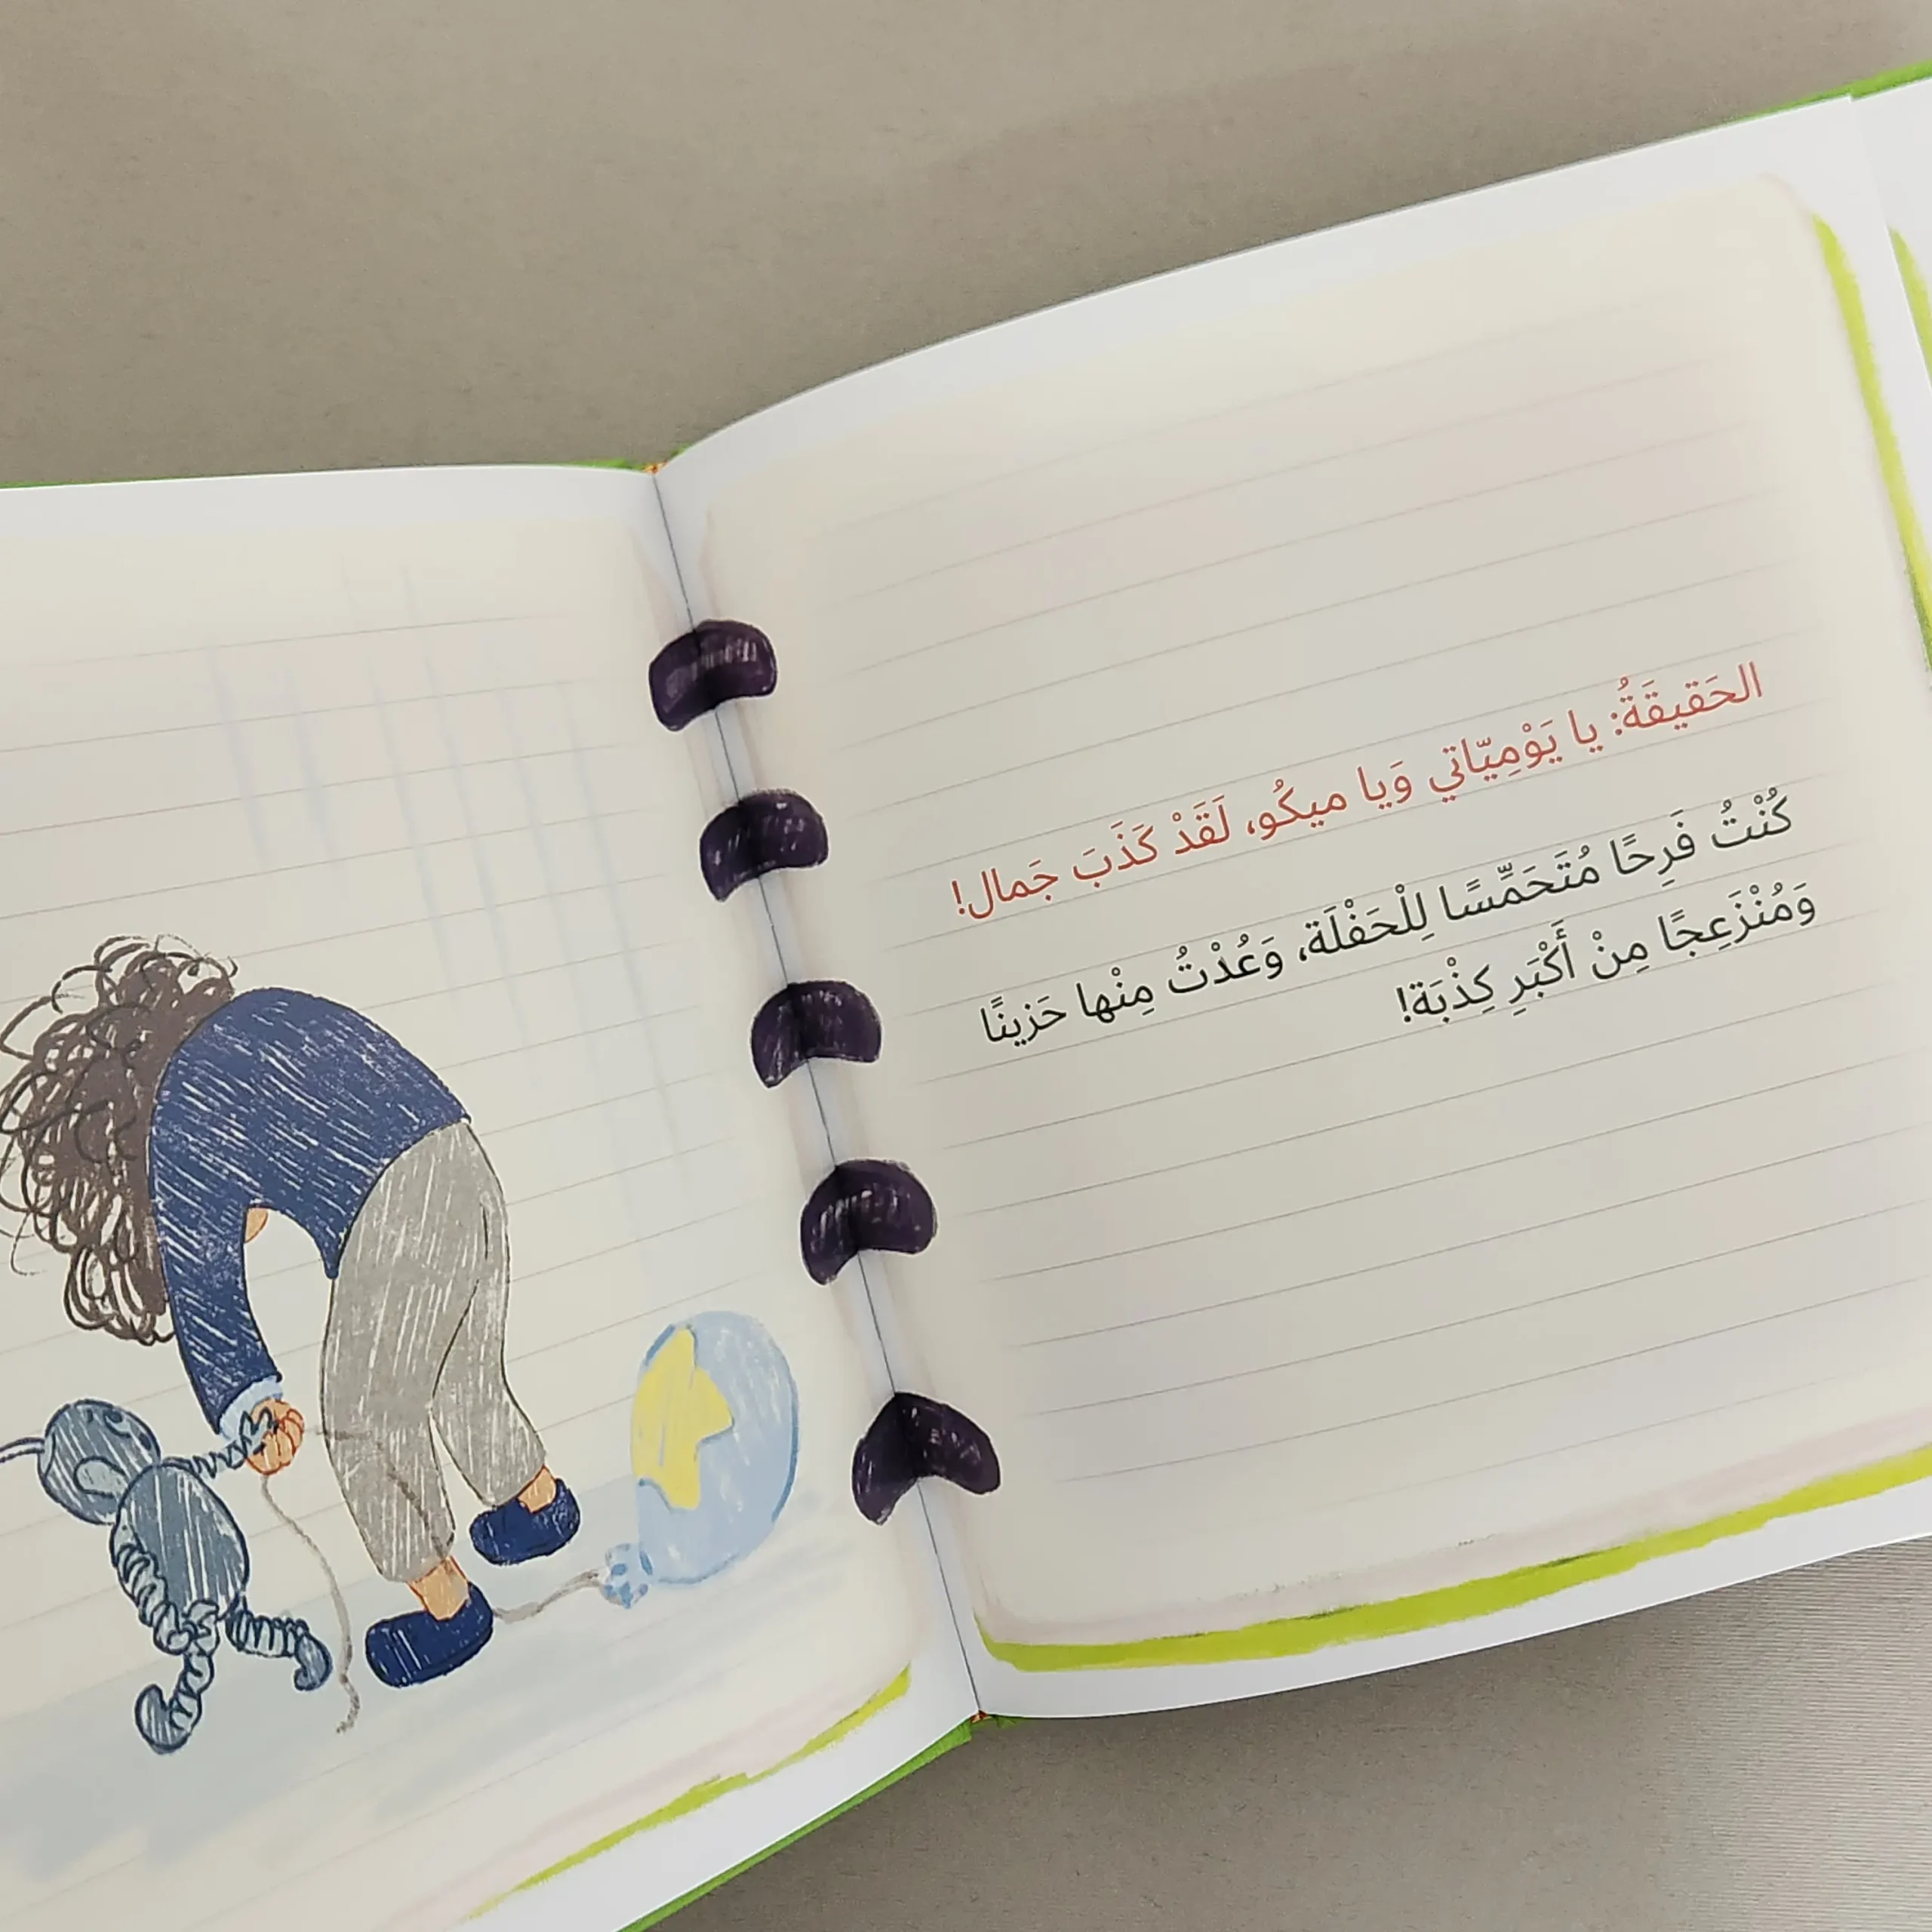 الحَقيقَةُ: يا يَوْمِيّاتي وَيا ميكُو، لَقَدْ كَذَبَ جَمال!
كُنْتُ فَرِحًا مُتَحَمِّسًا لِلْحَفْلَة، وَعُدْتُ مِنْها حَزينًا
وَمُنْزَعِجًا مِنْ أَكْبَرِ كِذْبَة!